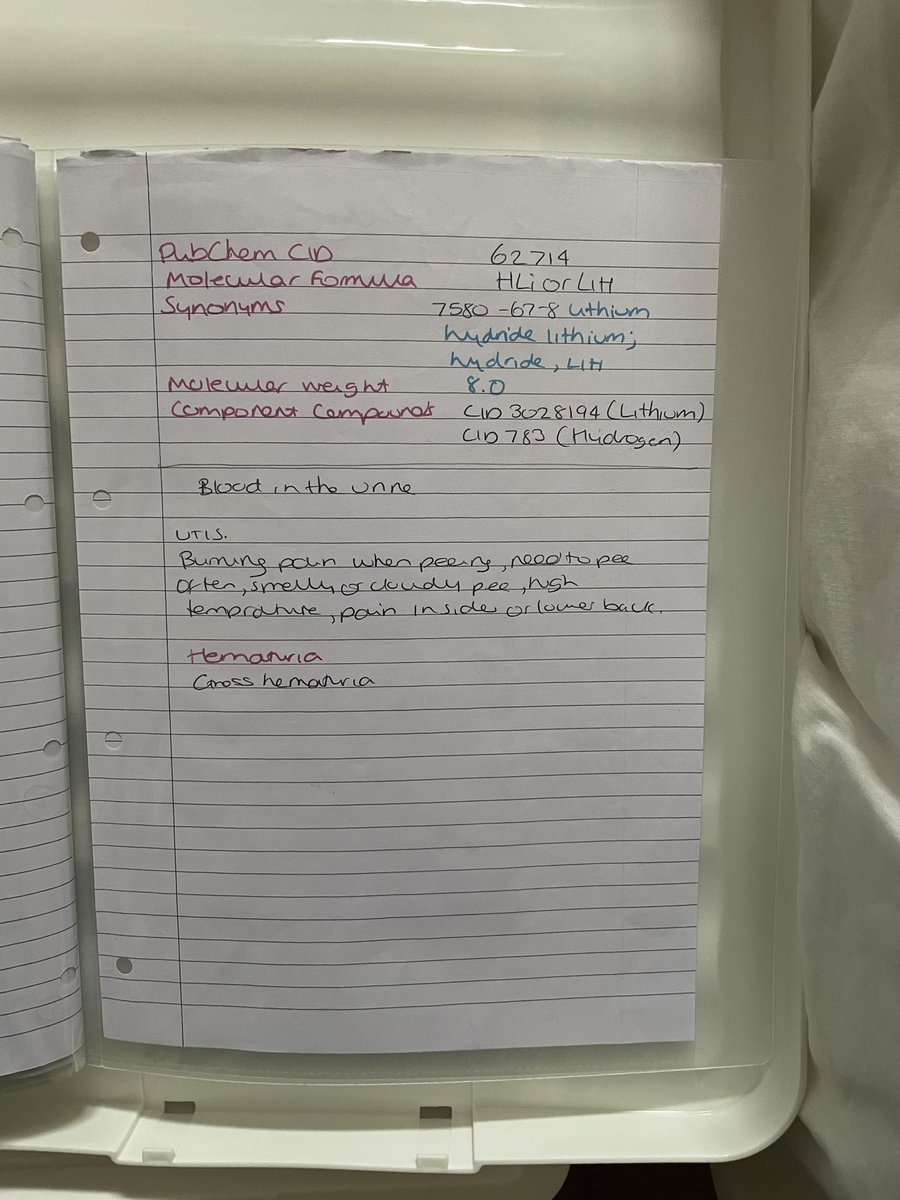 PubChem CID 62714
Molecular Formula HLi or LiH
Synonyms 7580-67-8 Lithium
hydride lithium;
hydride, LiH
Molecular weight 8.0
Component Compounds CID 3028194 (Lithium)
CID 783 (Hydrogen)
Blood in the urine
UTIS.
Burning pain when peeing, need to pee
often, smelly or cloudy pee, high
temprature, pain in side or lower back.
Hematuria
Gross hematuria